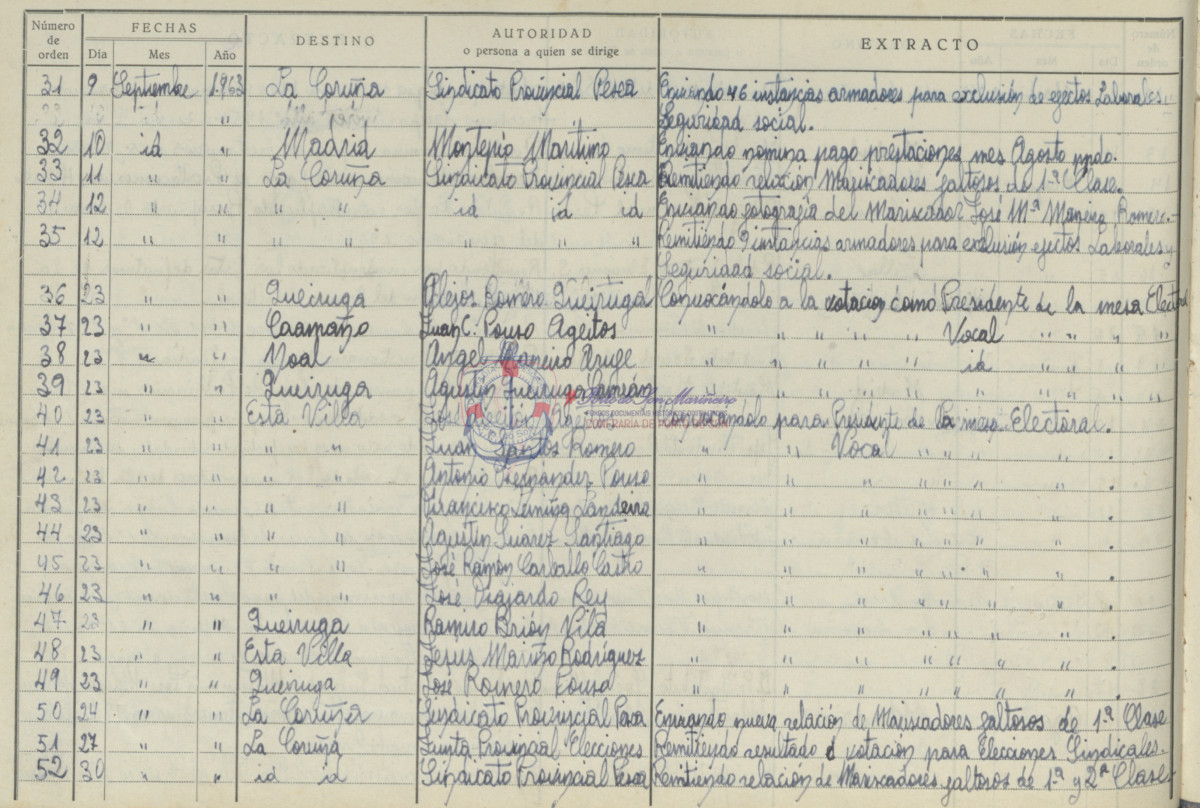 Número de orden FECHAS DESTINO AUTORIDAD o persona a quien se dirige EXTRACTO
Día Mes Año
31 9 Septiembre 1.963 La Coruña Sindicato Provincial Pesca Enviando 46 instancias armadores para exclusión de efectos Laborales.
" Seguridad social.
32 10 id " Madrid Montepio Maritimo Enviando nomina pago prestaciones mes Agosto ppdo.
33 11 " " La Coruña Sindicato Provincial Pesca Remitiendo relación Mariscadores faltosos de 1ª Clase.
34 12 " " " " id id id Enviando fotografía del Mariscador José Mª Maneiro Romero.-
35 12 " " " " " " " Remitiendo 9 instancias armadores para exclusión efectos Laborales y
Seguridad social.
36 23 " " Queiruga Alejos Romero Queiruga Convocándolo a la votacion como Presidente de la mesa Electoral
37 23 " " Caamaño Juan C. Pouso Ageitos " " " " " Vocal " " " "
38 23 " " Noal Angel Maneiro " " " " " id " " " "
39 23 " " Queiruga Agustin Queiruga " " " " " " " " " "
40 23 " " Esta Villa Convocándolo para Presidente de la mesa Electoral.
41 23 " " " " Juan Santos Romero " " " Vocal " " " " .
42 23 " " " " Antonio Fernández Pouso " " " " " " " " .
43 23 " " " " Francisco Lariña Landeira " " " " " " " " .
44 23 " " " " Agustin Suárez Santiago " " " " " " " " .
45 23 " " " " José Ramón Carballo Castro " " " " " " " " .
46 23 " " " " José Fajardo Rey " " " " " " " " .
47 23 " " Queiruga Ramiro Brión Vila " " " " " " " " .
48 23 " " Esta Villa Jesus Mariño Rodríguez " " " " " " " " .
49 23 " " Queiruga José Romero Pousa " " " " " " " " .
50 24 " " La Coruña Sindicato Provincial Pesca Enviando nueva relación de Mariscadores faltosos de 1ª Clase
51 27 " " La Coruña Junta Provincial Elecciones Remitiendo resultado d votación para Elecciones Sindicales.
52 30 " " id id Sindicato Provincial Pesca Remitiendo relación de Mariscadores faltosos de 1ª y 2ª Clase.